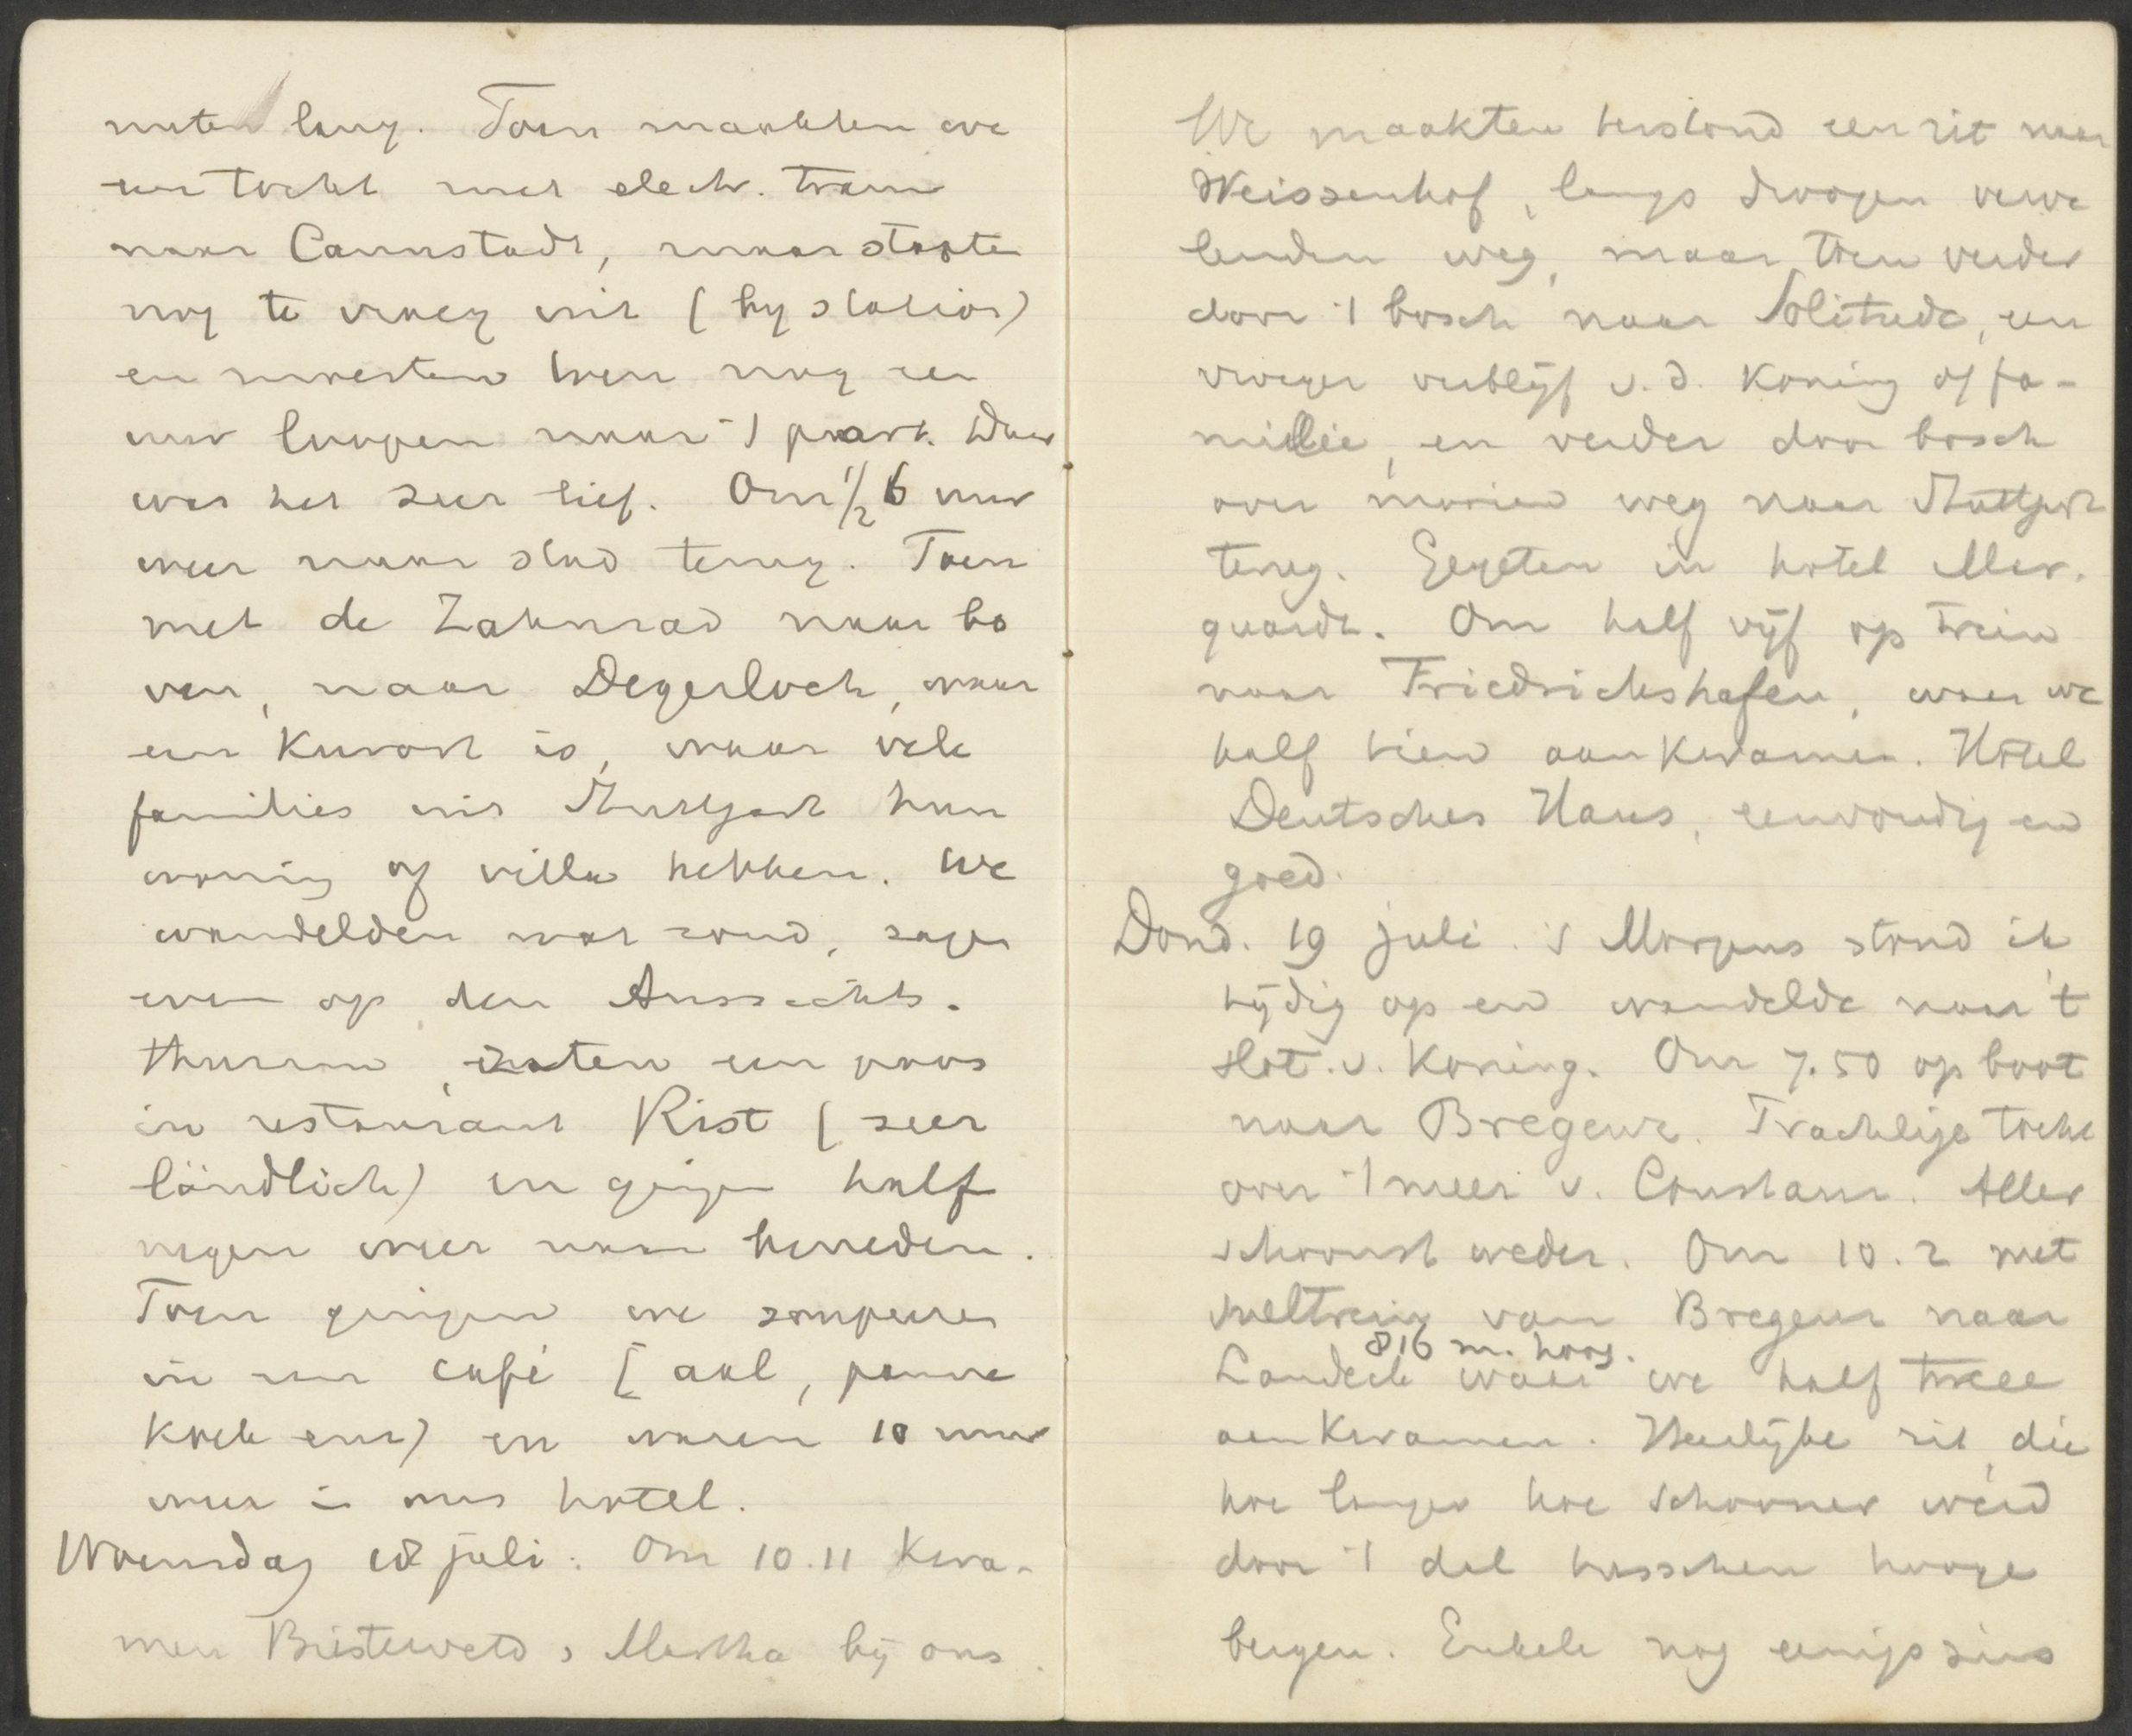 nuten lang. Toen maakten we
een tocht met electr. tram
naar Cannstadt, maar stapten
nog te vroeg uit (bij station)
en moesten toen nog een
uur loopen naar 't park. Daar
was het zeer lief. Om 1/2 6 uur
weer naar stad terug. Toen
met de Zahnrad naar bo
ven, naar Degerloch, waar
een Kurort is, waar vele
families uit Stuttgart hun
woning of villa hebben. We
wandelden wat rond, zagen
even op den Aussichts-
thurm, rustten een poos
in restaurant Rist (zeer
ländlich) en gingen half
negen weer naar beneden.
Toen gingen we soupeeren
in een café (aal, panne
koek enz) en waren 10 uur
weer in ons hotel.
Woensdag 18 juli: Om 10.11 kwa-
men Martha bij ons.
We maakten terstond een rit naar
Weissenhof, langs droogen verve
lenden weg, maar toen verder
door 't bosch naar Solitude, een
vroeger verblijf v.d. Koning of fa-
milie, en verder door bosch
over mooien weg naar Stuttgart
terug. Gegeten in hotel Mar-
quardt. Om half vijf op trein
naar Friedrichshafen, waar we
half tien aankwamen. Hotel
Deutsches Haus, eenvoudig en
goed.
Dond. 19 juli. 's Morgens stond ik
tijdig op en wandelde naar 't
slot v. Koning. Om 7.50 op boot
naar Bregenz. Prachtige tocht
over 't meer v. Constanz. Aller
schoonst weder. Om 10.2 met
sneltrein van Bregenz naar
816 m. hoog.
Landeck waar we half twee
aankwamen. Heerlijke rit, die
hoe langer hoe schooner werd
door 't dal tusschen hooge
bergen. Enkele nog eenigszins